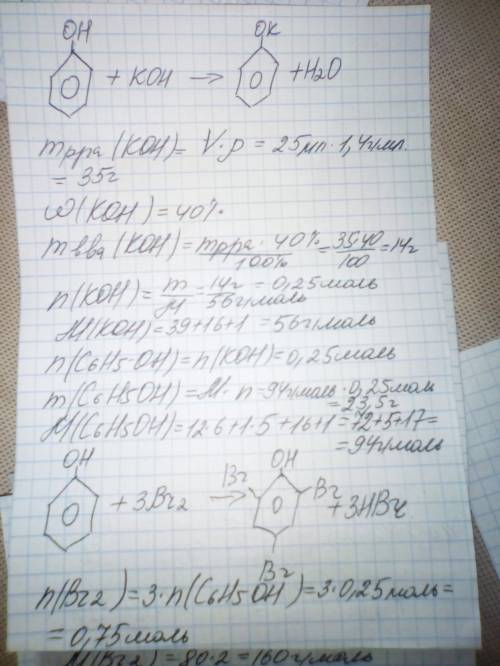 OH OK
+ KOH → + H2O
mрра (KOH) = V·ρ = 25мл · 1,4г/мл.
= 35г
ω(KOH) = 40%
mвва (KOH) = mрра · 40% / 100% = 35·40 / 100 = 14г
n(KOH) = m / M = 14г / 56г/моль = 0,25моль
M(KOH) = 39+16+1 = 56г/моль
n(C6H5OH) = n(KOH) = 0,25моль
m(C6H5OH) = M · n = 94г/моль · 0,25моль
= 23,5г
M(C6H5OH) = 12·6+1·5+16+1 = 72+5+17 =
= 94г/моль
OH OH
Br Br
+ 3Br2 → + 3HBr
Br
n(Br2) = 3·n(C6H5OH) = 3·0,25моль =
= 0,75моль
M(Br2) = 80·2 = 160г/моль